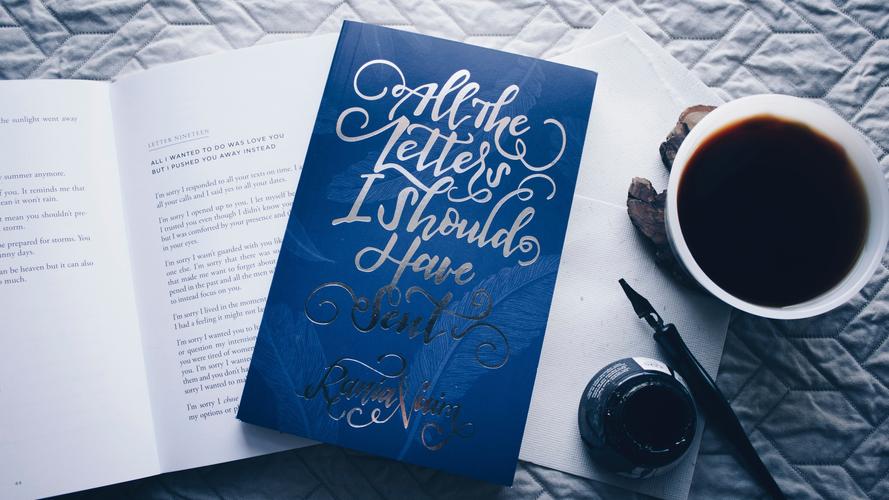 he sunlight went away
y summer anymore.
f you. It reminds me that
ean it won't rain.
t mean you shouldn't pre-
storm.
be prepared for storms. You
nny days.
an be heaven but it can also
o much.
44
LETTER NINETEEN
ALL I WANTED TO DO WAS LOVE YOU
BUT I PUSHED YOU AWAY INSTEAD
I'm sorry I responded to all your texts on time. I a
all your calls and I said yes to all your dates.
I'm sorry I opened up to you. I let myself be
I trusted you even though I didn't know you
but I was comforted by your presence and t
in your eyes.
I'm sorry I wasn't guarded with you lik
one else. I'm sorry that there was so
that made me want to forget about
pened in the past and all the men w
to instead focus on you.
I'm sorry I lived in the moment
I had a feeling it might not la
I'm sorry I wanted you to h
or question my intention
you were tired of women
you. I'm sorry I wante
them and you don't ha
sorry I wanted to ma
I'm sorry I chose
my options or p
All the
Letters
I Should
Have
Sent
Rania Naim